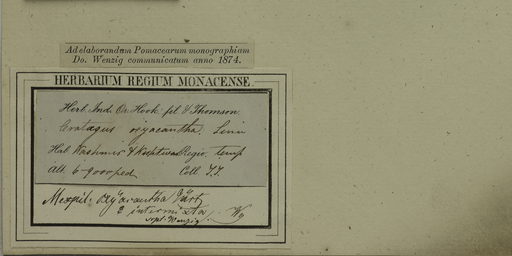 Ad elaborandum Pomacearum monographiam
Do. Wenzig communicatum anno 1874.
HERBARIUM REGIUM MONACENSE.
Herb. Ind. Or. Hook. fil. & Thomson.
Crataegus oxyacantha, Linn
Hab. Kashmir & Regio. temp
Alt. 6-9000 ped. Coll. T.T.
Mespil. oxyacantha Gärtn
intermixta
Wenzig